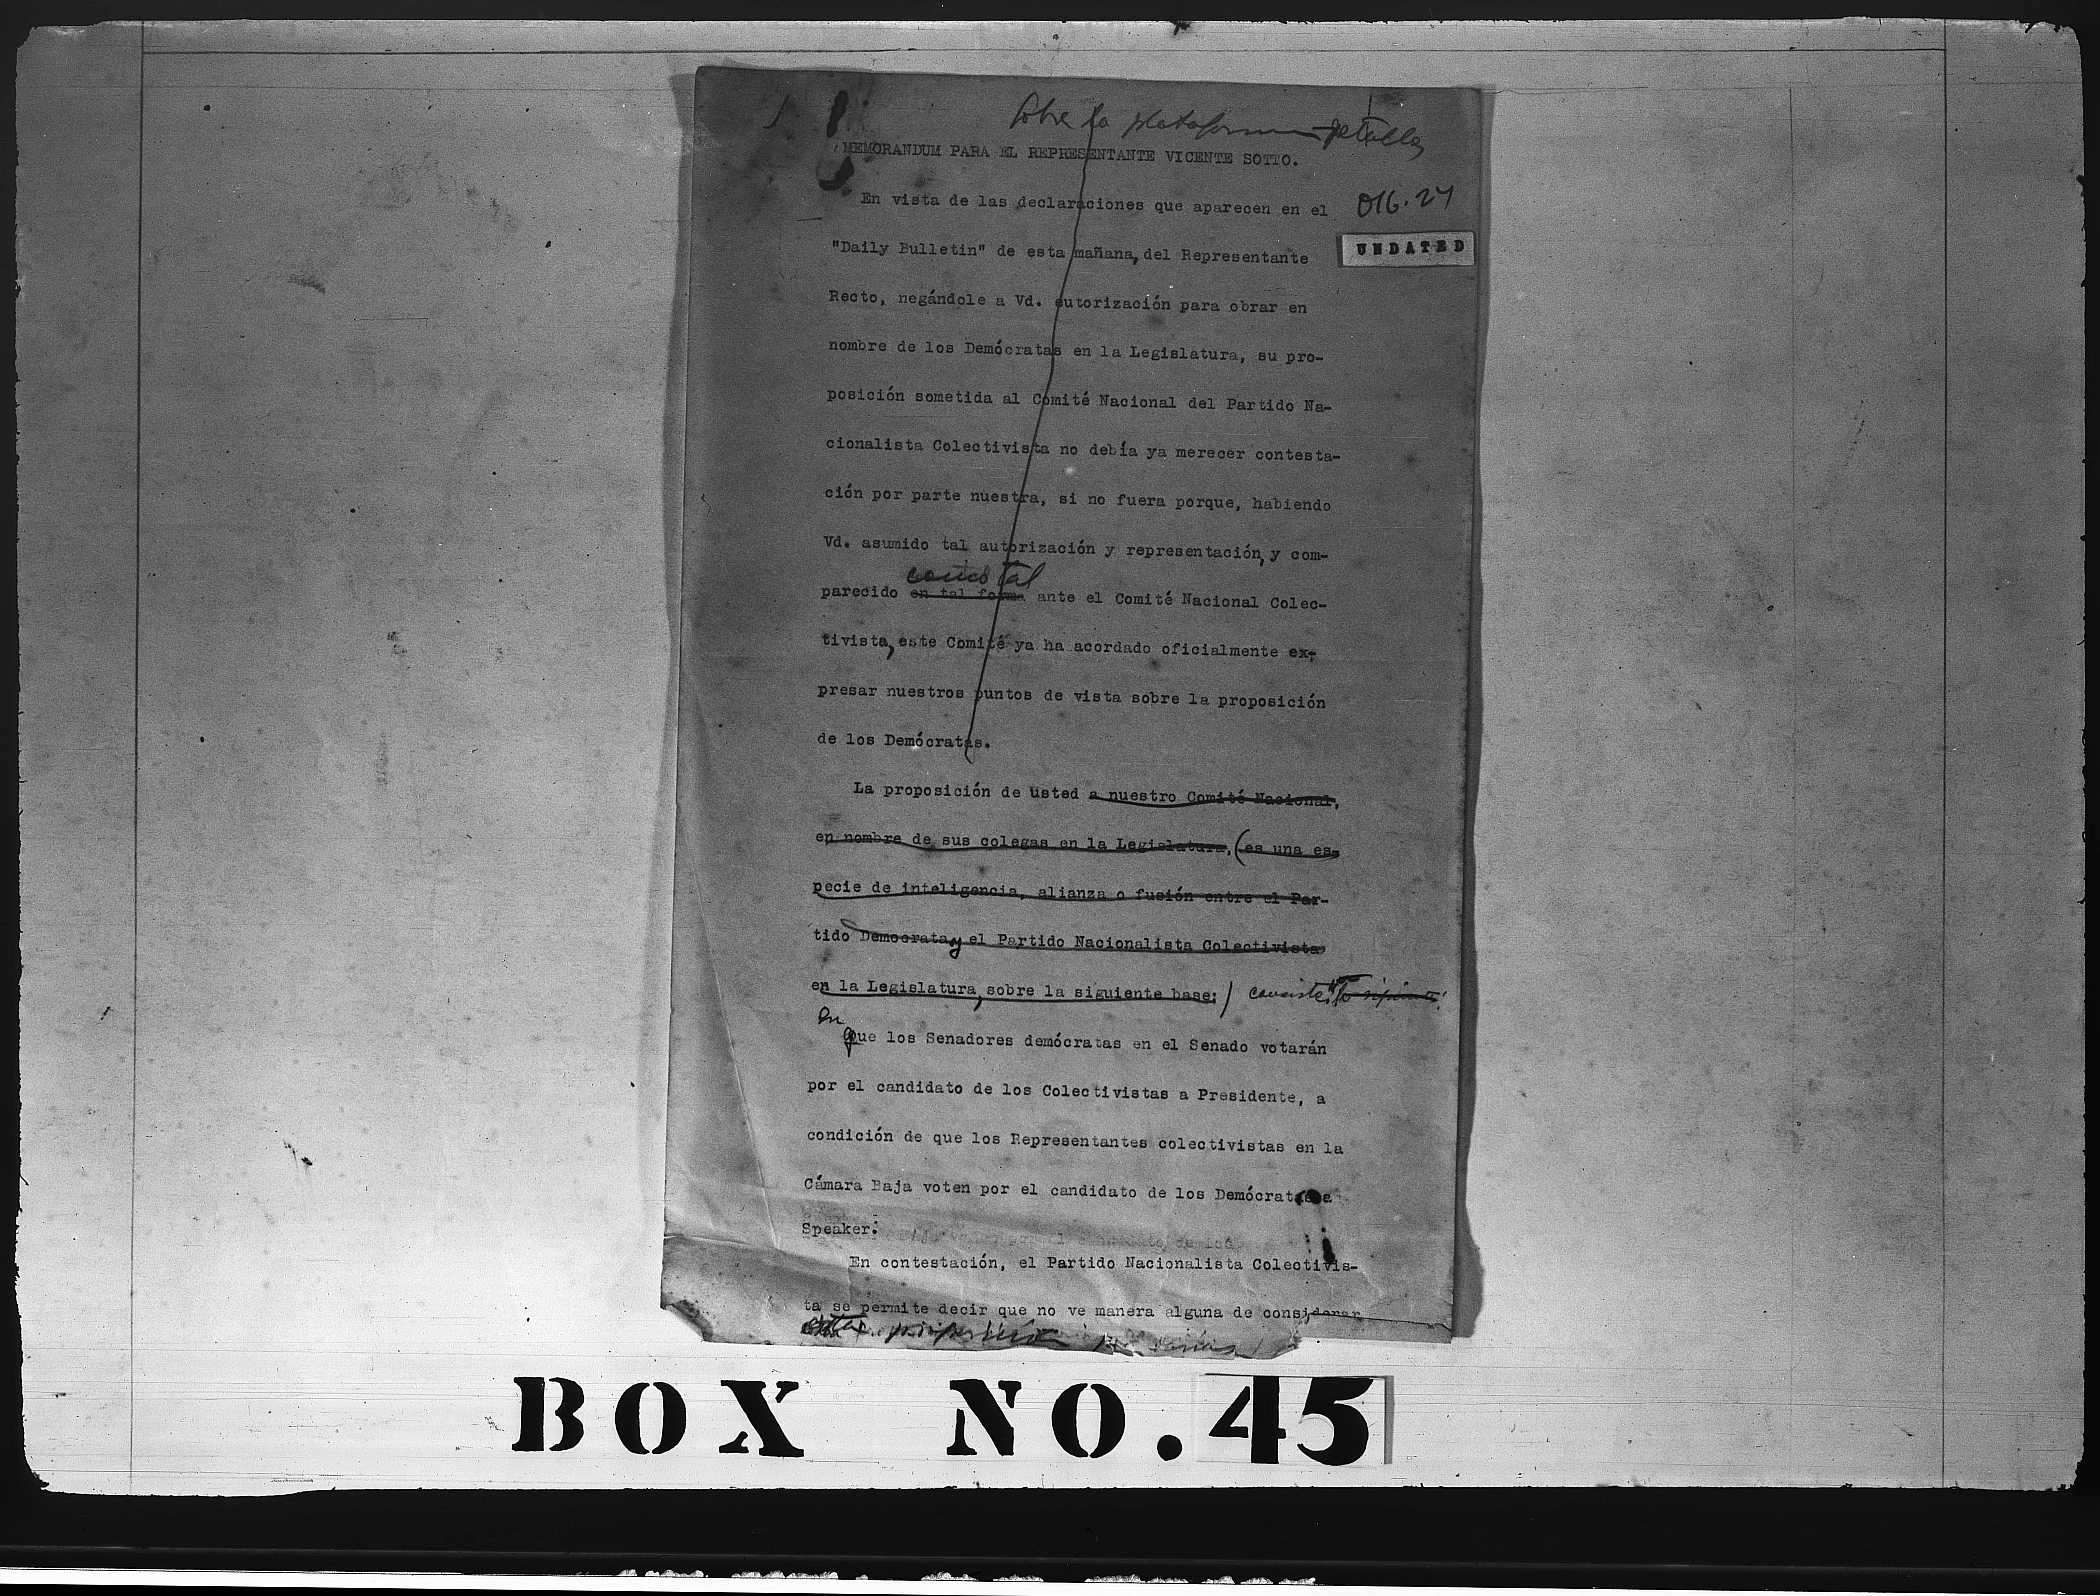 Sobre la plataforma
MEMORANDUM PARA EL REPRESENTANTE VICENTE SOTTO.
En vista de las declaraciones que aparecen en el
016.27
"Daily Bulletin" de esta mañana, del Representante
UNDATED
Recto, negándole a Vd. autorización para obrar en
nombre de los Demócratas en la Legislatura, su pro-
posición sometida al Comité Nacional del Partido Na-
cionalista Colectivista no debía ya merecer contesta-
ción por parte nuestra, si no fuera porque, habiendo
Vd. asumido tal autorización y representación, y com-
como tal
parecido en tal forma ante el Comité Nacional Colec-
tivista, este Comité ya ha acordado oficialmente ex-
presar nuestros puntos de vista sobre la proposición
de los Demócratas.
La proposición de usted a nuestro Comité Nacional,
en nombre de sus colegas en la Legislatura, (es una es-
pecie de inteligencia, alianza o fusión entre el Par-
tido Democrata y el Partido Nacionalista Colectivista
en la Legislatura, sobre la siguiente base:) consiste
en
Que los Senadores demócratas en el Senado votarán
por el candidato de los Colectivistas a Presidente, a
condición de que los Representantes colectivistas en la
Cámara Baja voten por el candidato de los Demócratas a
Speaker.
En contestación, el Partido Nacionalista Colectivis-
ta se permite decir que no ve manera alguna de considerar
esta proposición
BOX NO. 45